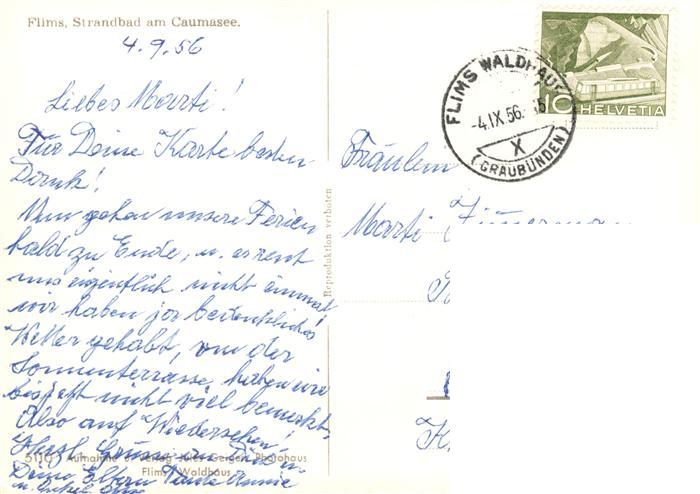 Flims, Strandbad am Caumasee.
4.9.56
Liebes Marti!
Für Deine Karte besten
Dank!
Nun gehen unsere Ferien
bald zu Ende, u. es reut
uns eigentlich nicht einmal
wir haben ja bedenkliches
Wetter gehabt, von der
Sonnenterrasse, haben wir
bis jetzt nicht viel bemerkt.
Also auf Wiedersehen!
Herzl. Grüsse an Dich u.
Deine Eltern Tante Annie
5110 Aufnahme u. Verlag Jules Geiger, Photohaus
Flims Waldhaus
Reproduktion verboten
FLIMS WALDHAUS
-4.IX.56.
X
(GRAUBÜNDEN)
10 HELVETIA
Fräulein
Marti